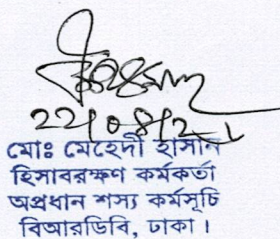 ২২/০৪/২১
মোঃ মেহেদী হাসান
হিসাবরক্ষণ কর্মকর্তা
অপ্রধান শস্য কর্মসূচি
বিআরডিবি, ঢাকা।